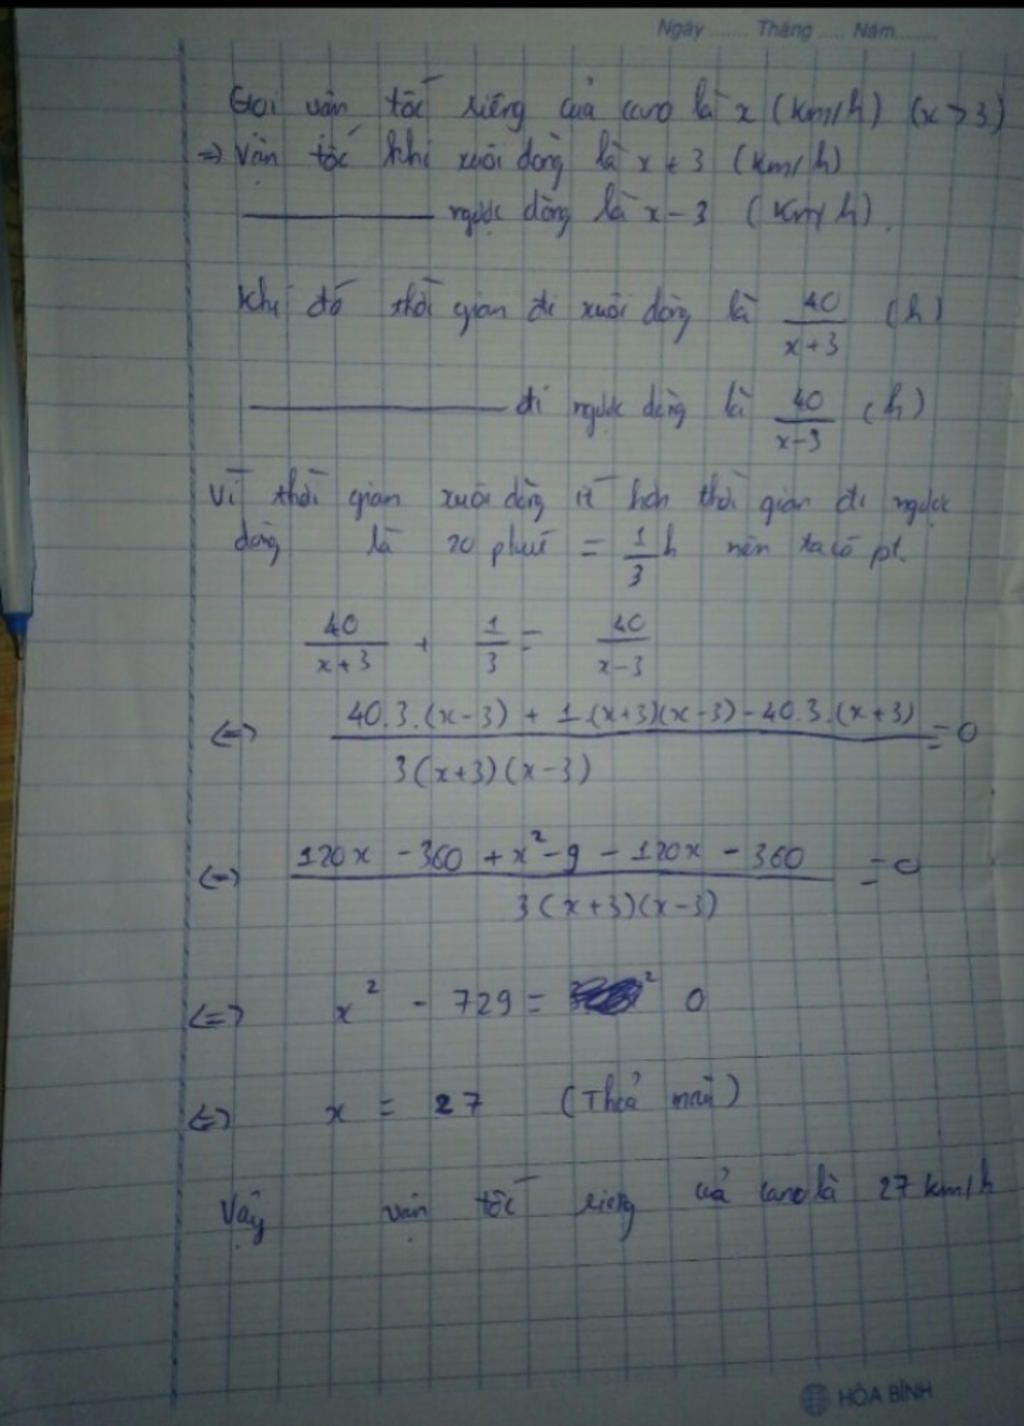 Ngày ....... Tháng ..... Năm.......
Gọi vận tốc riêng của cano là x (km/h) (x > 3)
=> Vận tốc khi xuôi dòng là x + 3 (km/h)
——— ngược dòng là x - 3 (km/h).
Khi đó thời gian đi xuôi dòng là 40/(x+3) (h)
——— đi ngược dòng là 40/(x-3) (h)
Vì thời gian xuôi dòng ít hơn thời gian đi ngược
dòng là 20 phút = 1/3 h nên ta có pt.
40/(x+3) + 1/3 = 40/(x-3)
<=> (40.3.(x-3) + 1.(x+3)(x-3) - 40.3.(x+3))/(3(x+3)(x-3)) = 0
<=> (120x - 360 + x² - 9 - 120x - 360)/(3(x+3)(x-3)) = 0
<=> x² - 729 = 0
<=> x = 27 (Thỏa mãn)
Vậy vận tốc riêng của cano là 27 km/h
HÒA BÌNH